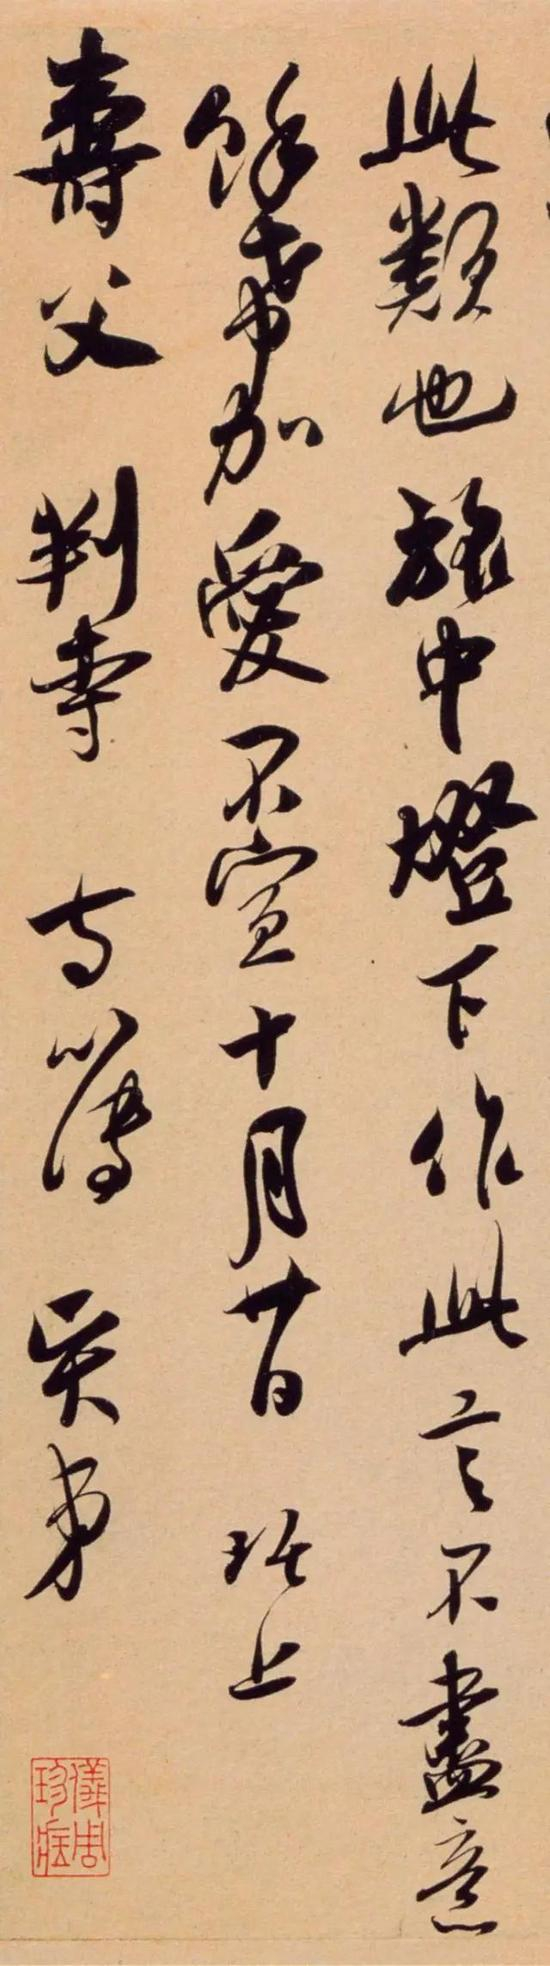 此類也旅中燈下作此言不盡意
餘希加愛不宣十月廿日 琚上
壽父 判寺 寺簿 賢弟
儀周珍藏